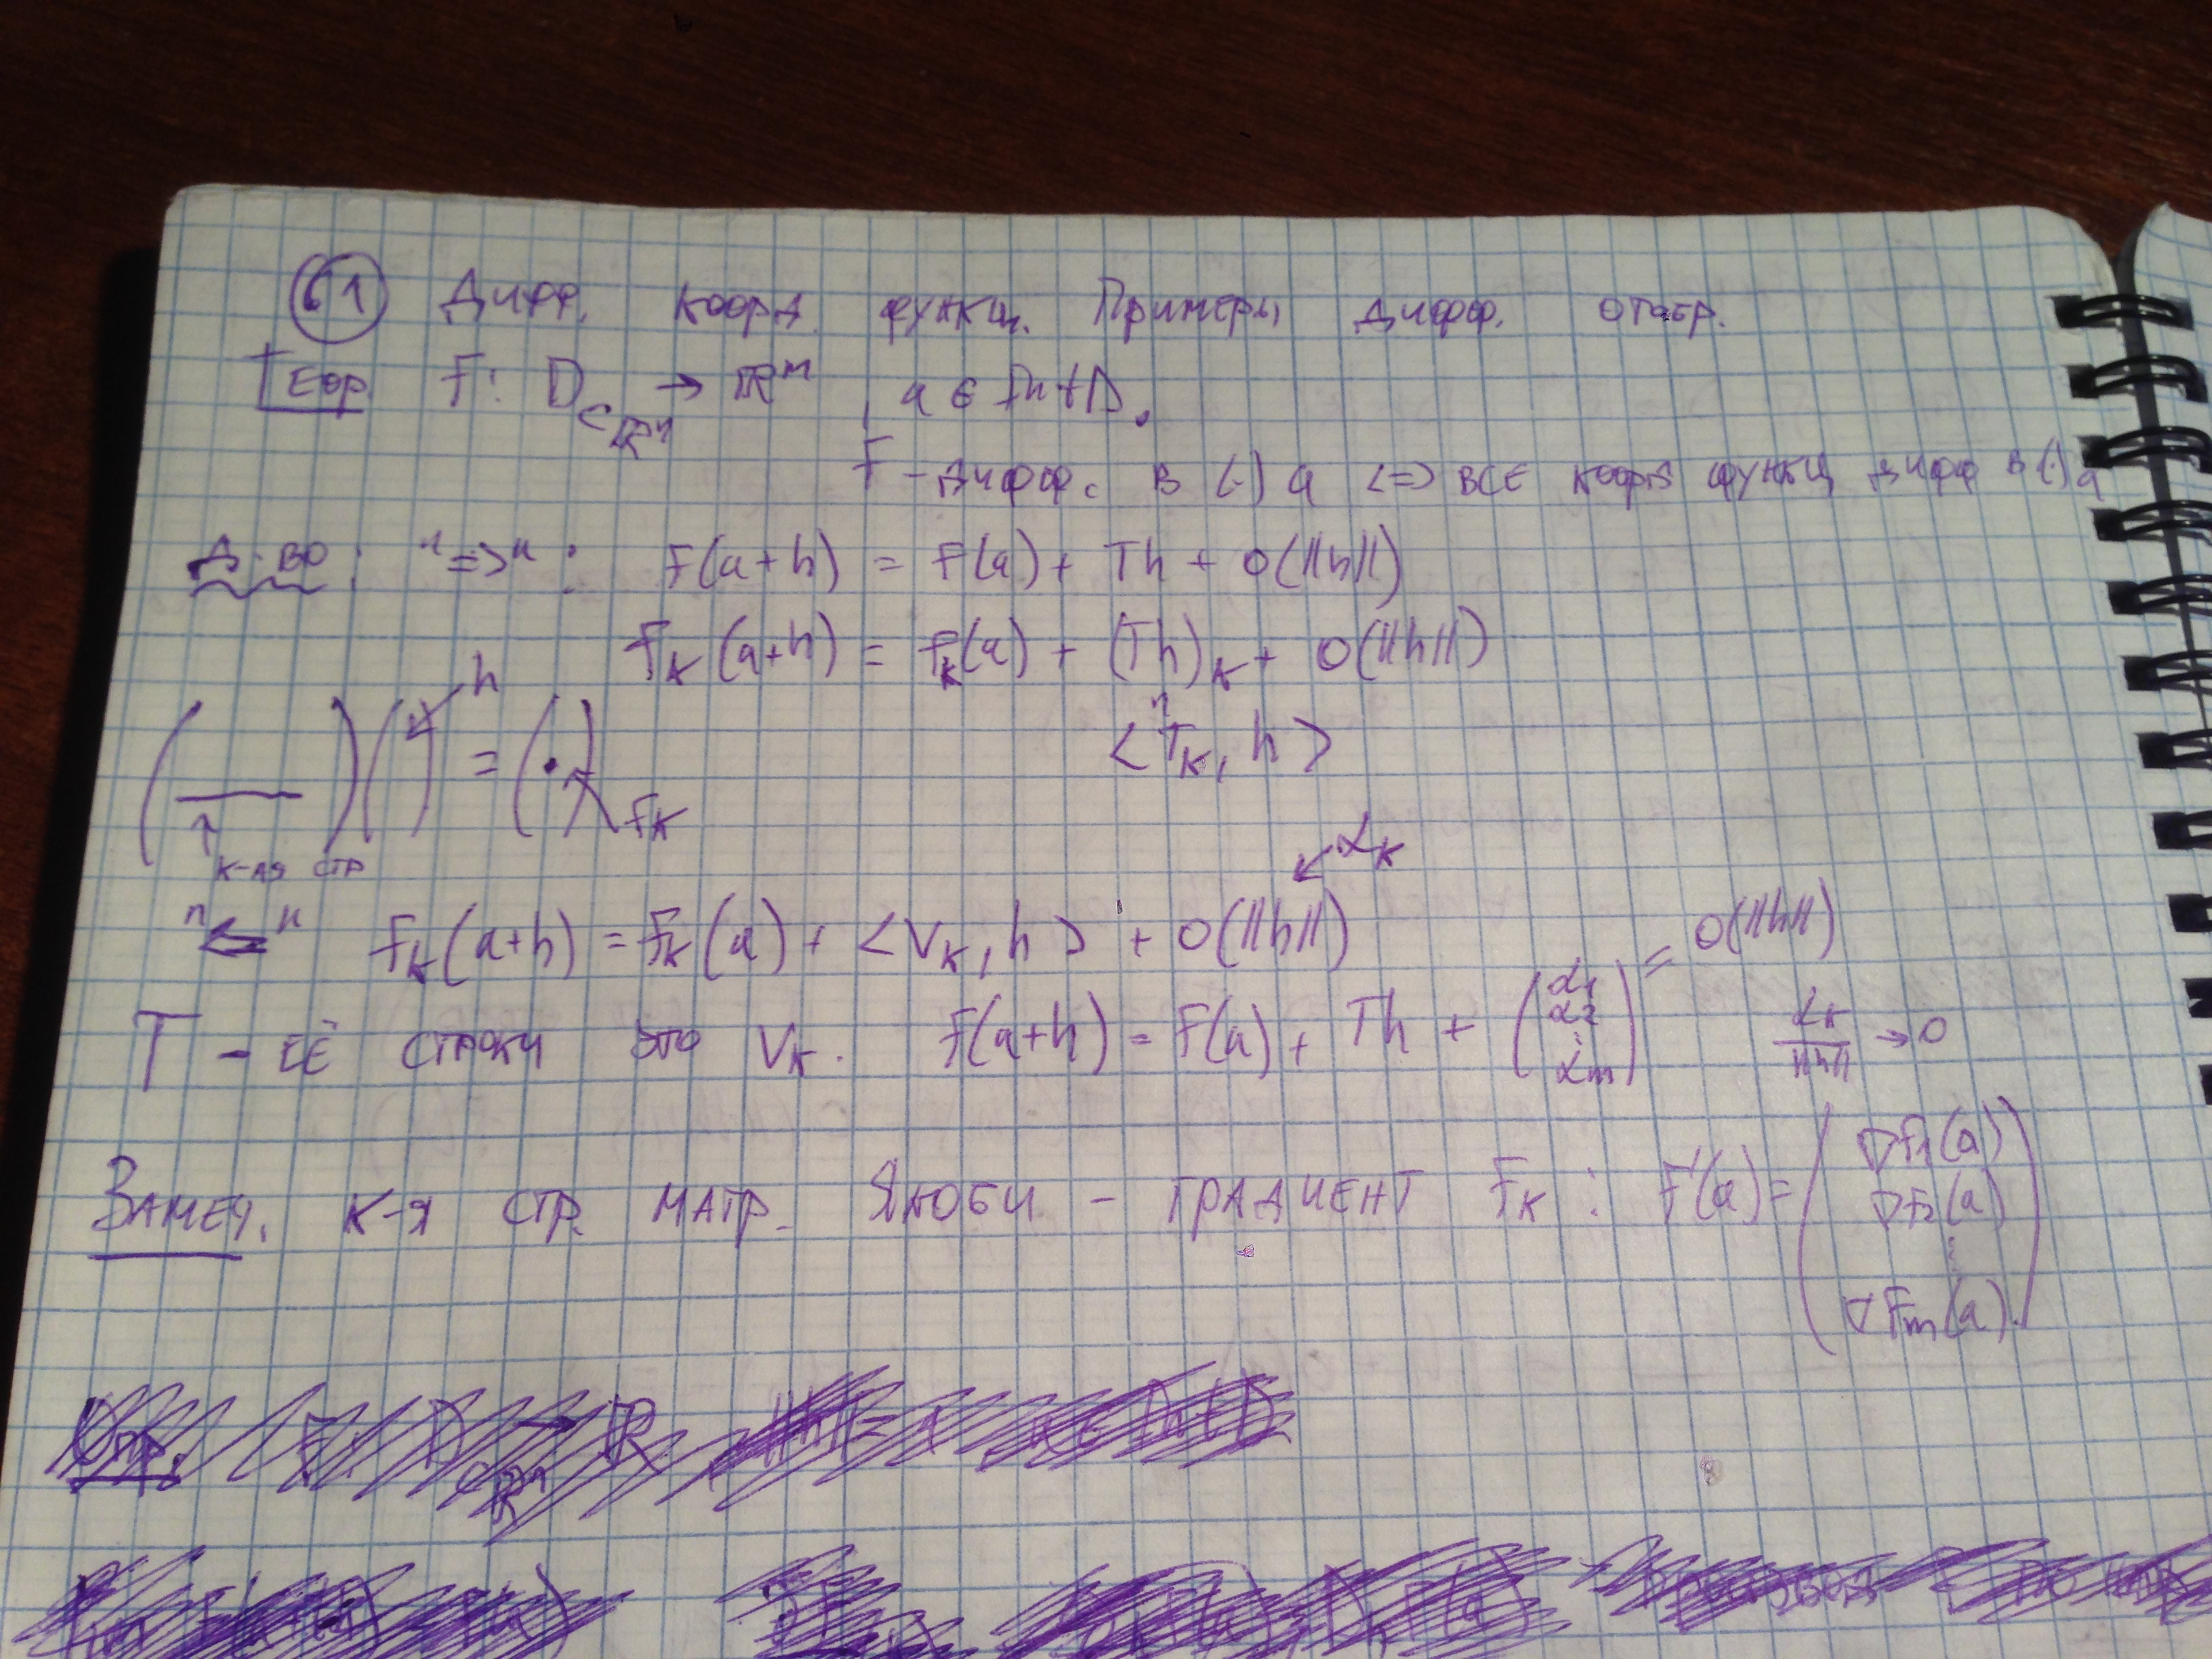 61 Дифф. коорд. функц. Примеры дифф. отобр.
Теор. F: D ⊂ ℝⁿ → ℝᵐ, a ∈ Int D.
F – дифф. в (·) a <=> все коорд функц дифф в (·) a
Д-во: "=>": F(a+h) = F(a) + Th + o(||h||)
F_K(a+h) = F_K(a) + (Th)_K + o(||h||)
h
( ) ( ) = ( · ) F_K
<T_K, h>
К-ая стр
α_K
"<=" F_K(a+h) = F_K(a) + <V_K, h> + o(||h||)
T – её строки это V_K. F(a+h) = F(a) + Th + (α₁ α₂ ⋮ α_m) = o(||h||) α_K/||h|| → 0
Замеч. К-я стр. матр. Якоби – градиент F_K : F'(a) = (∇F₁(a) ∇F₂(a) ⋮ ∇F_m(a))